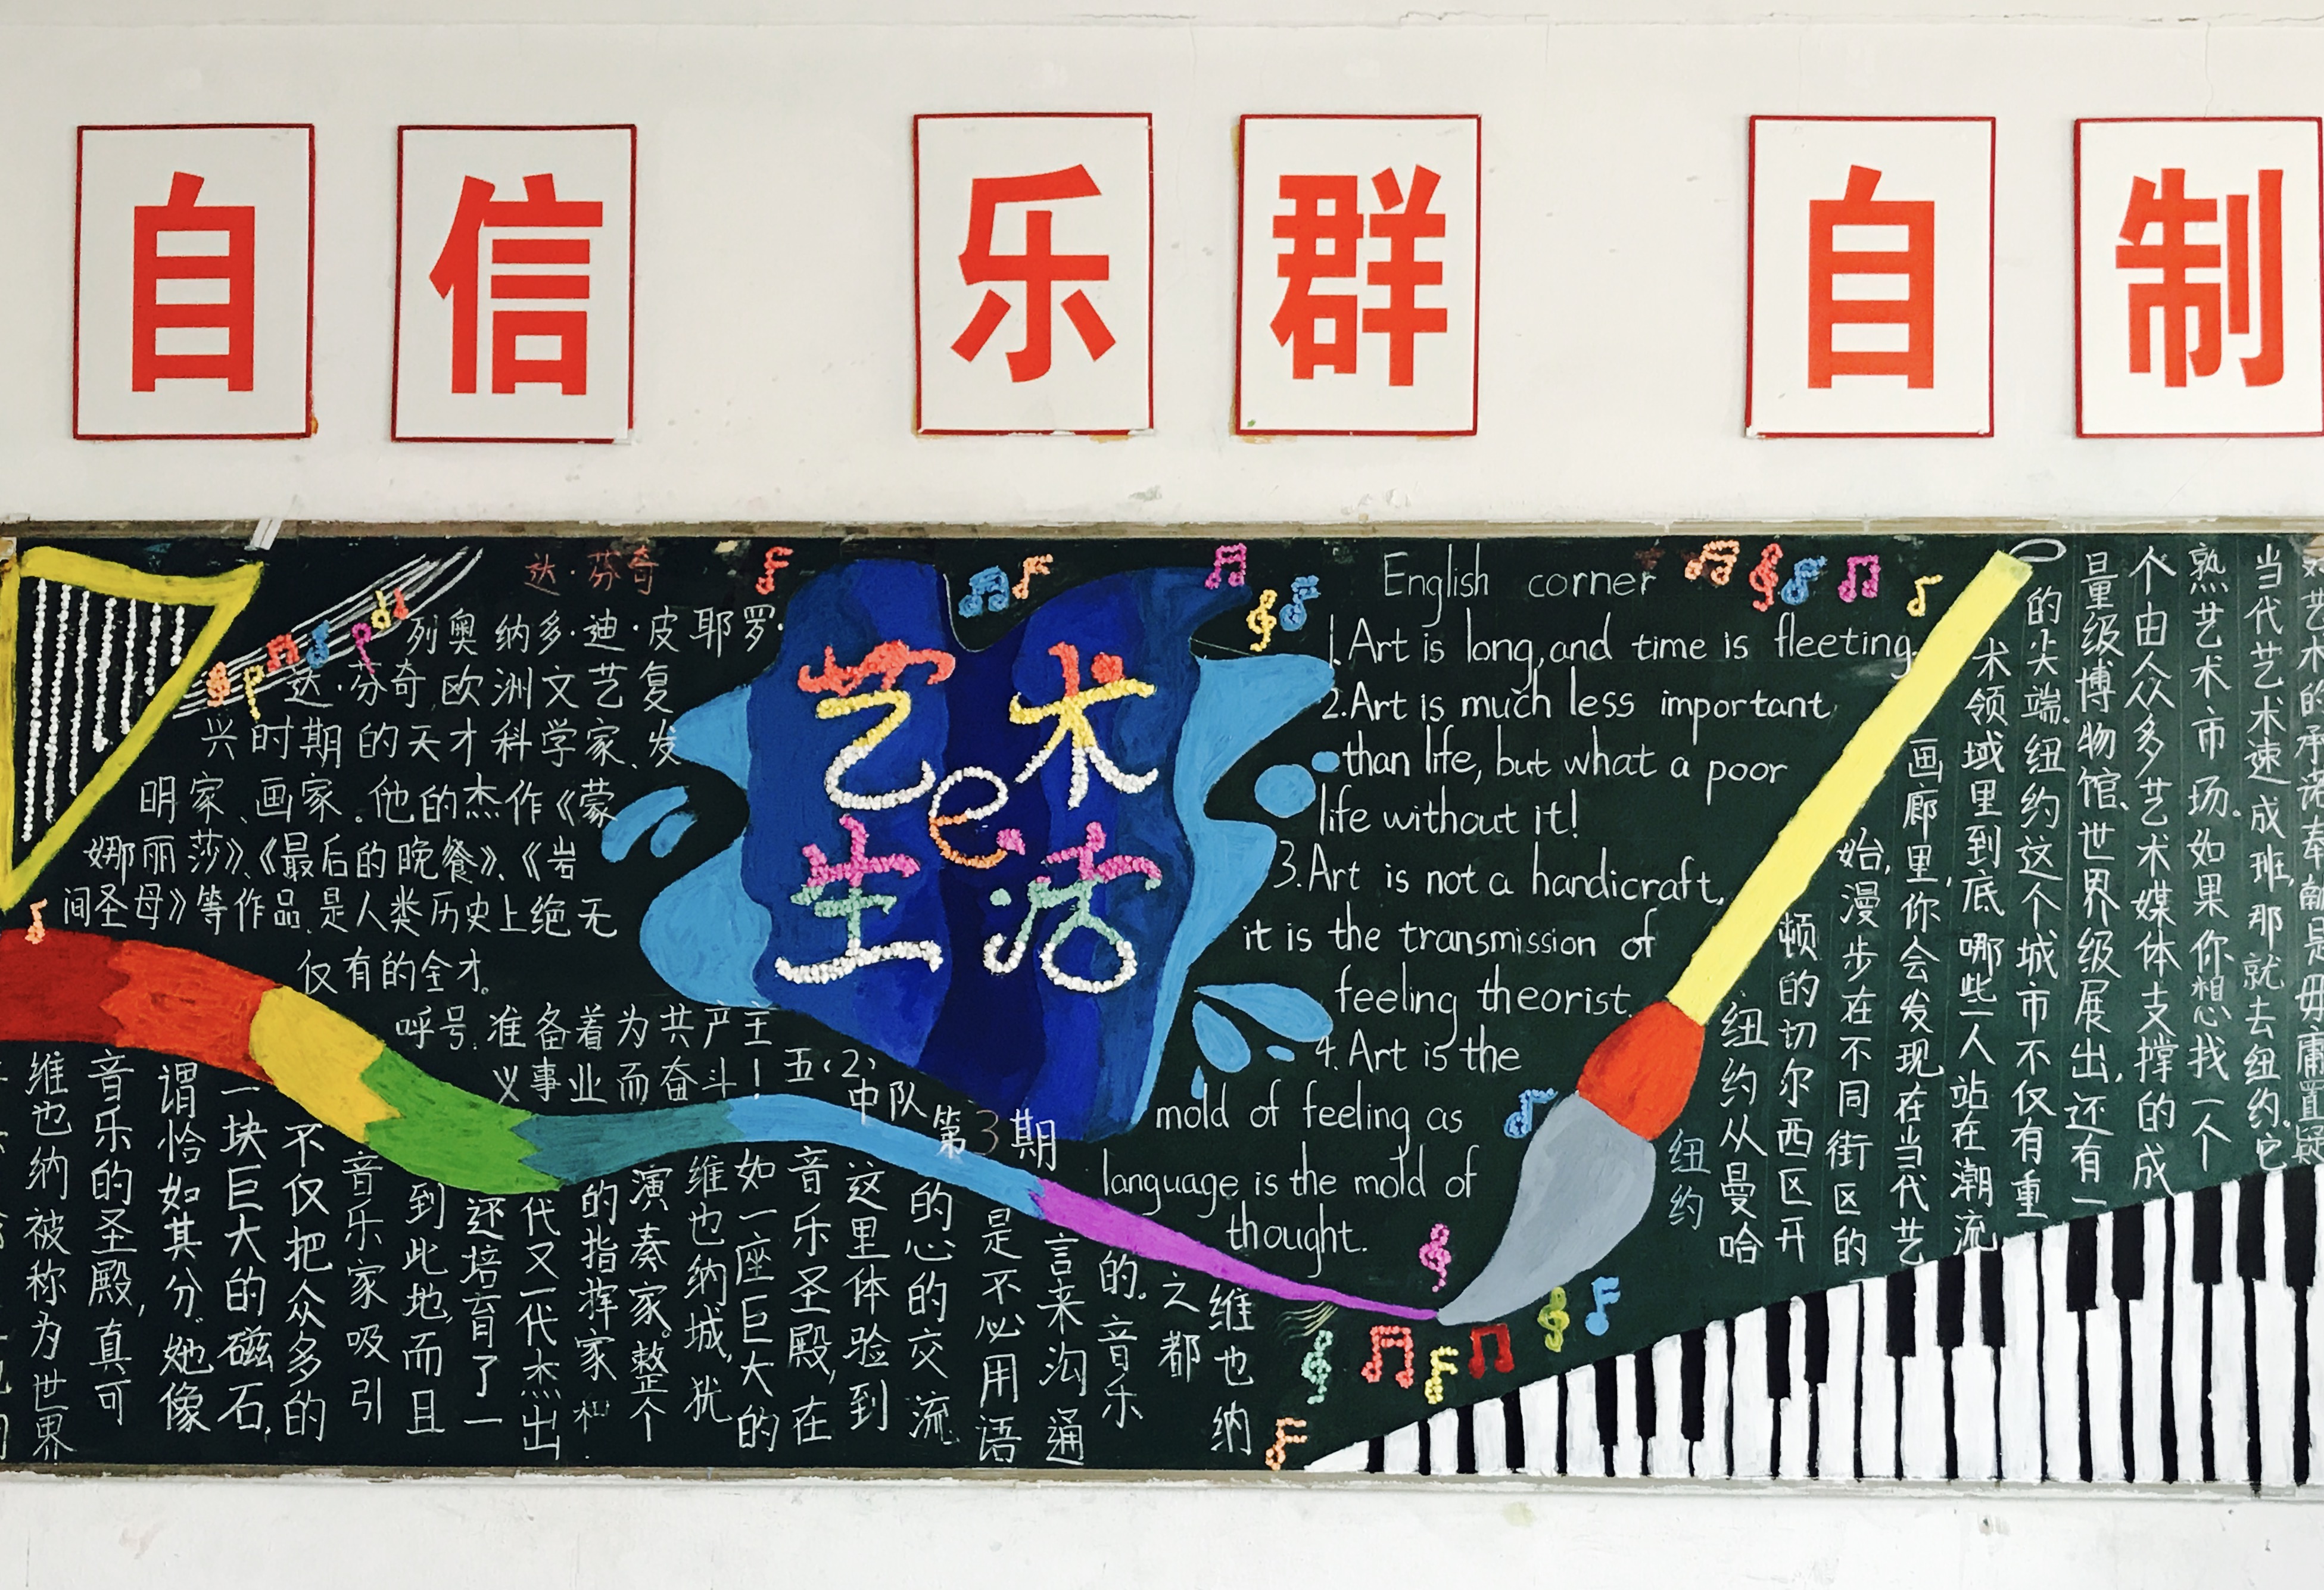 自信 乐群 自制
达·芬奇
列奥纳多·迪·皮耶罗·
达·芬奇,欧洲文艺复
兴时期的天才科学家、发
明家、画家。他的杰作《蒙
娜丽莎》、《最后的晚餐》、《岩
间圣母》等作品,是人类历史上绝无
仅有的全才。
呼号:准备着为共产主
义事业而奋斗!
五(2)
中队
第3期
艺术
e
生活
English corner
1.Art is long,and time is fleeting.
2.Art is much less important
than life, but what a poor
life without it!
3.Art is not a handicraft,
it is the transmission of
feeling theorist.
4.Art is the
mold of feeling as
language is the mold of
thought.
纽约
纽约从曼哈
顿的切尔西区开
始,漫步在不同街区的
画廊里,你会发现在当代艺
术领域里到底哪些人站在潮流
的尖端.纽约这个城市不仅有重
量级博物馆、世界级展出,还有一
个由众多艺术媒体支撑的成
熟艺术市场。如果你想找一个
当代艺术速成班,那就去纽约。它
维也纳
之都
的。音乐
言来沟通
是不必用语
的心的交流
这里体验到
音乐圣殿,在
如一座巨大的
维也纳城,犹
演奏家。整个
的指挥家和
代又一代杰出
还培育了一
到此地,而且
音乐家吸引
不仅把众多的
一块巨大的磁石,
谓恰如其分。她像
音乐的圣殿,真可
维也纳被称为世界